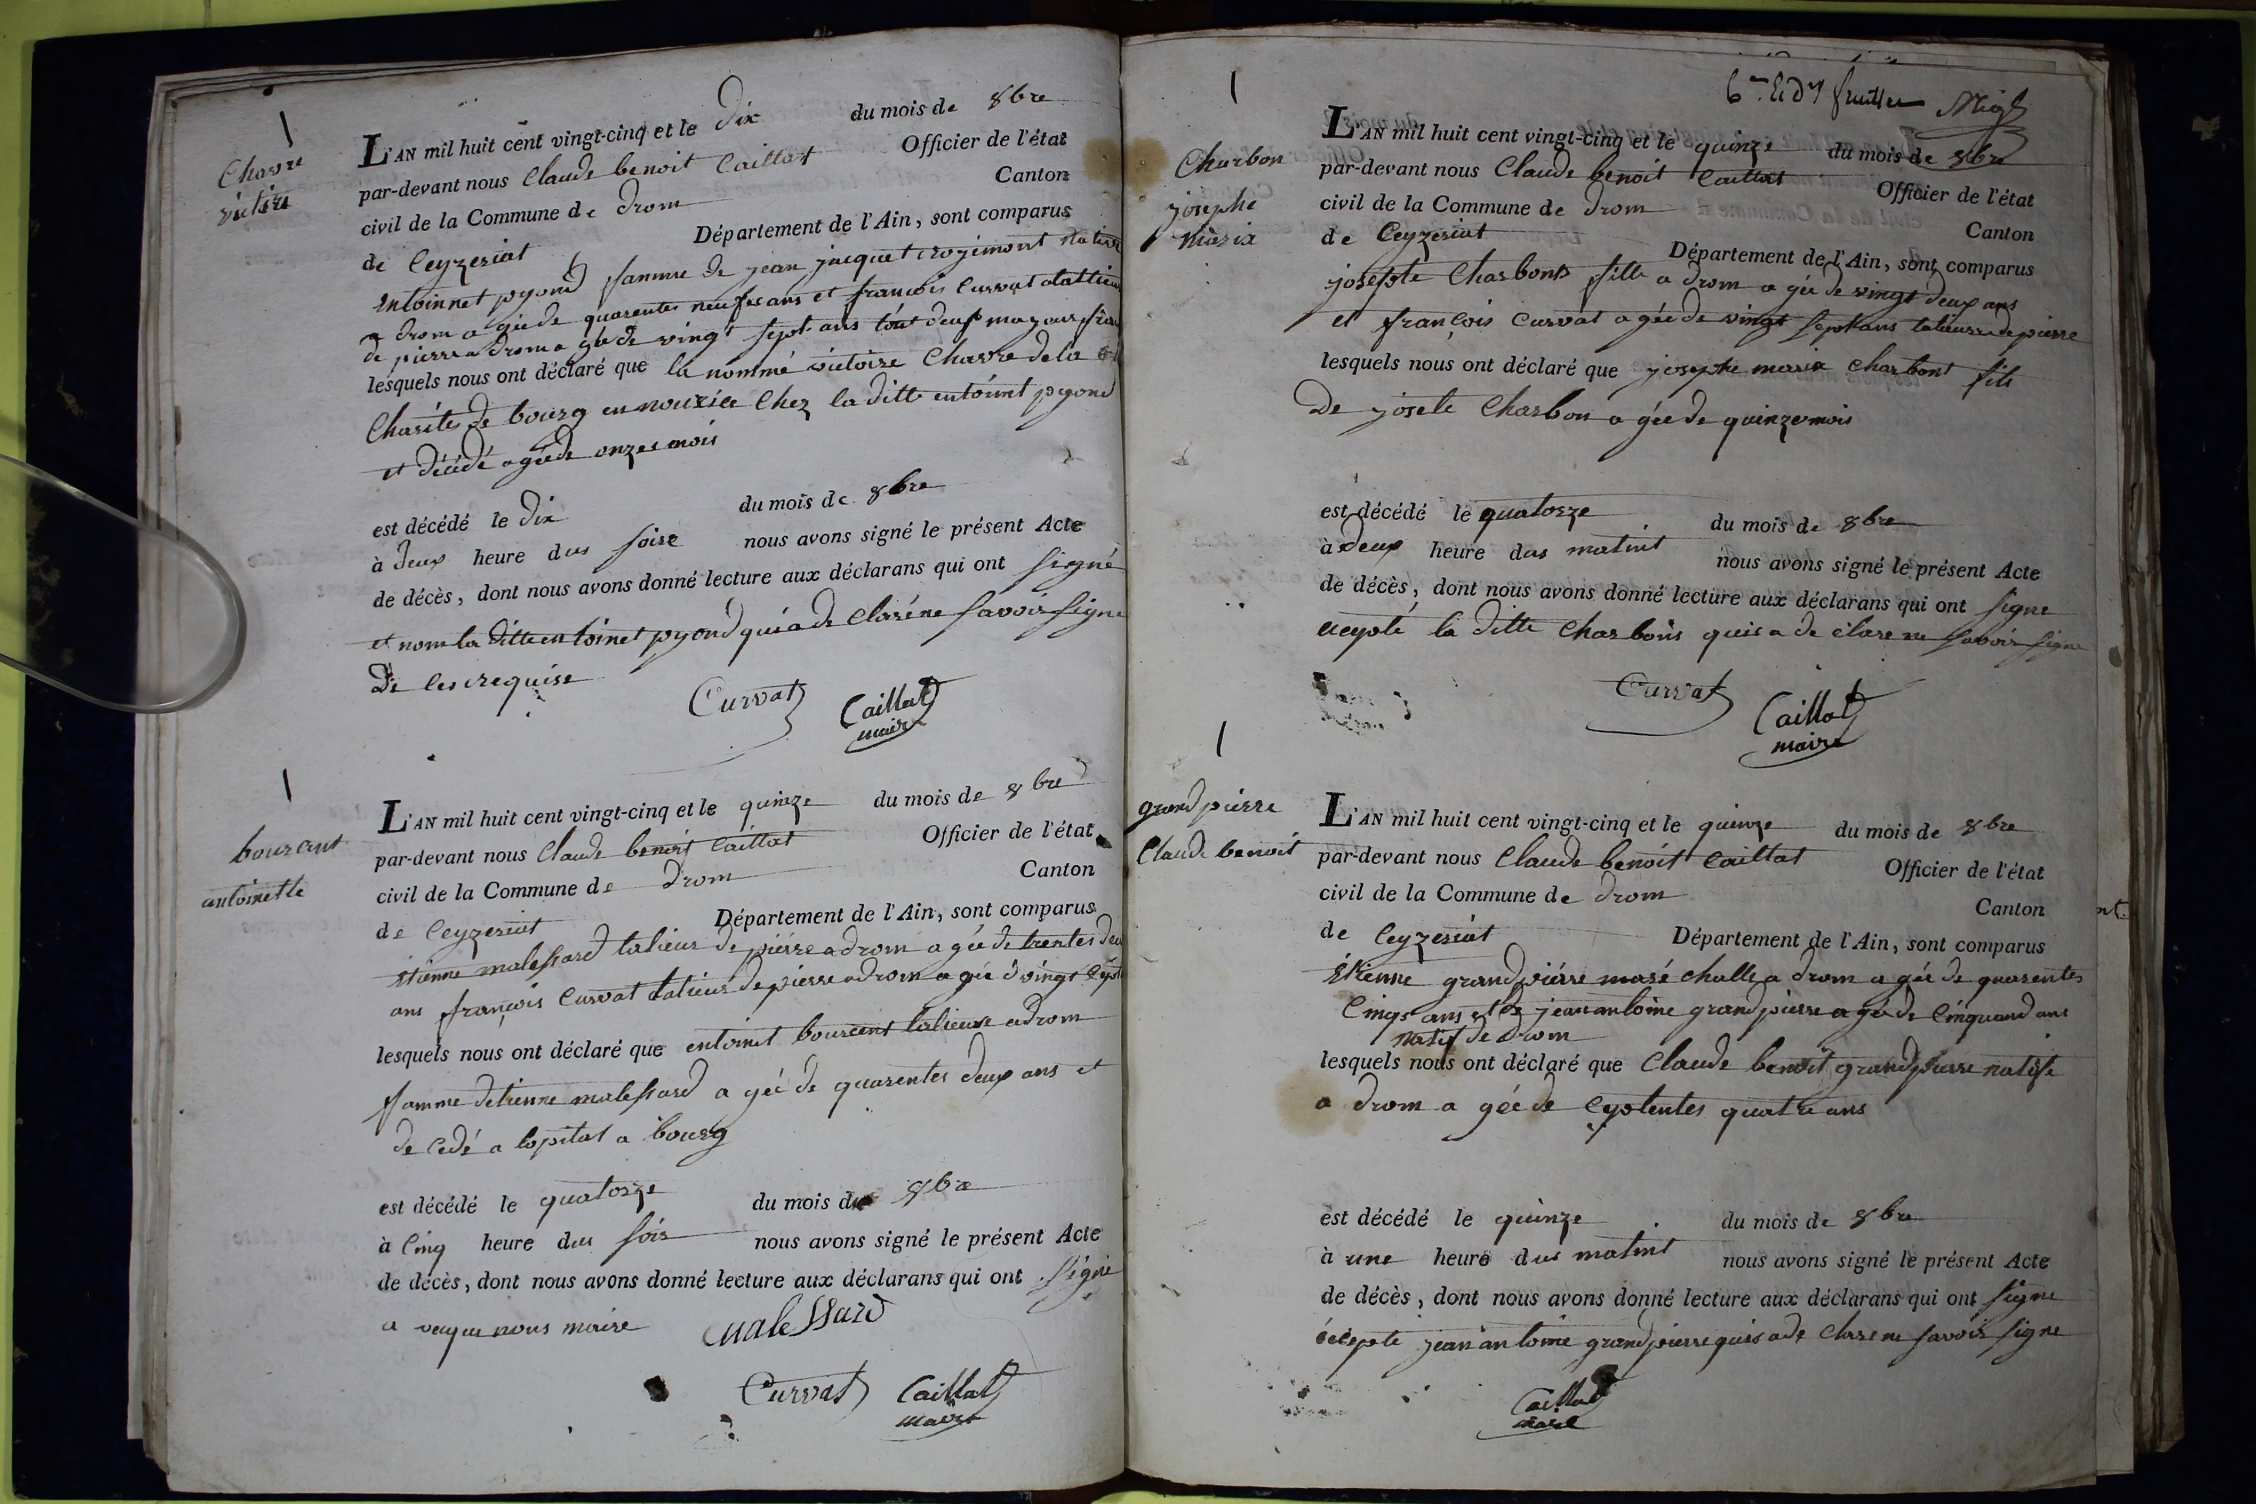 Chavre
victoire
L'AN mil huit cent vingt-cinq et le Dix du mois de 8bre
par-devant nous Claude benoit Caillat Officier de l'état
civil de la Commune de Drom Canton
de Ceyzeriat Département de l'Ain, sont comparus
entoinnet pyond famme de jean jacquet native
a drom agée de quarentes neufes ans et francois Curvat
de pierre a drom agée de vingt sept ans tout deux
lesquels nous ont déclaré que la nommé victoire Chavre de la
Charité de bourg en nourice Chez la ditte entoinnt pyond
et décédé agéede onzes mois
est décédé le Dix du mois de 8bre
à deux heure dus soire nous avons signé le présent Acte
de décès, dont nous avons donné lecture aux déclarans qui ont signé
et nom la ditte entoinet pyond qui a de claréne savoir signe
De les requise
Curvat Caillat
maire
bourant
antoinette
L'AN mil huit cent vingt-cinq et le quinze du mois de 8bre
par-devant nous Claude benoit Caillat Officier de l'état
civil de la Commune de Drom Canton
de Ceyzeriat Département de l'Ain, sont comparus
étienne malessard talieur de pierre a drom a gée de trentes
ans françois Curvat talieur de pierre a drom a gée d vingt
lesquels nous ont déclaré que entoinet bourant talieuse a drom
famme detienne malessard a gée de quarentes deux ans et
de cedé a lopital a bourg
est décédé le quatorze du mois de 8bre
à Cinq heure dus soir nous avons signé le présent Acte
de décès, dont nous avons donné lecture aux déclarans qui ont signé
a nous maire malessard
Curvat Caillat
maire
6me
Charbon
josephe
Maria
L'AN mil huit cent vingt-cinq et le quinze du mois de 8bre
par-devant nous Claude benoit Caillat Officier de l'état
civil de la Commune de Drom Canton
de Ceyzeriat Département de l'Ain, sont comparus
josephte Charbont fille a drom a gée de vingt deux ans
et françois Curvat a gée de vingt sept ans talieure de pierre
lesquels nous ont déclaré que josephe maria Charbont fils
De josete Charbon a gée de quinze mois
est décédé le quatorze du mois de 8bre
à deux heure dus matint nous avons signé le présent Acte
de décès, dont nous avons donné lecture aux déclarans qui ont signe
la ditte Charbons quis a de clare ne savoir signe
Curvat Caillat
maire
grand pierre
Claude benoit
L'AN mil huit cent vingt-cinq et le quinze du mois de 8bre
par-devant nous Claude benoit Caillat Officier de l'état
civil de la Commune de Drom Canton
de Ceyzeriat Département de l'Ain, sont comparus
Étienne grandpiérre maréchalle a drom a gée de quarentes
Cinqs ans et de jean antoine grandpierre a gée de Cinquand ans
natif de Drom
lesquels nous ont déclaré que Claude benoit grandpierre natife
a Drom a gée de eptentes quatre ans
est décédé le quinze du mois de 8bre
à une heure dus matint nous avons signé le présent Acte
de décès, dont nous avons donné lecture aux déclarans qui ont signe
écepté jean antoine grandpierre quis a de Clare ne savoir signe
Caillat
maire